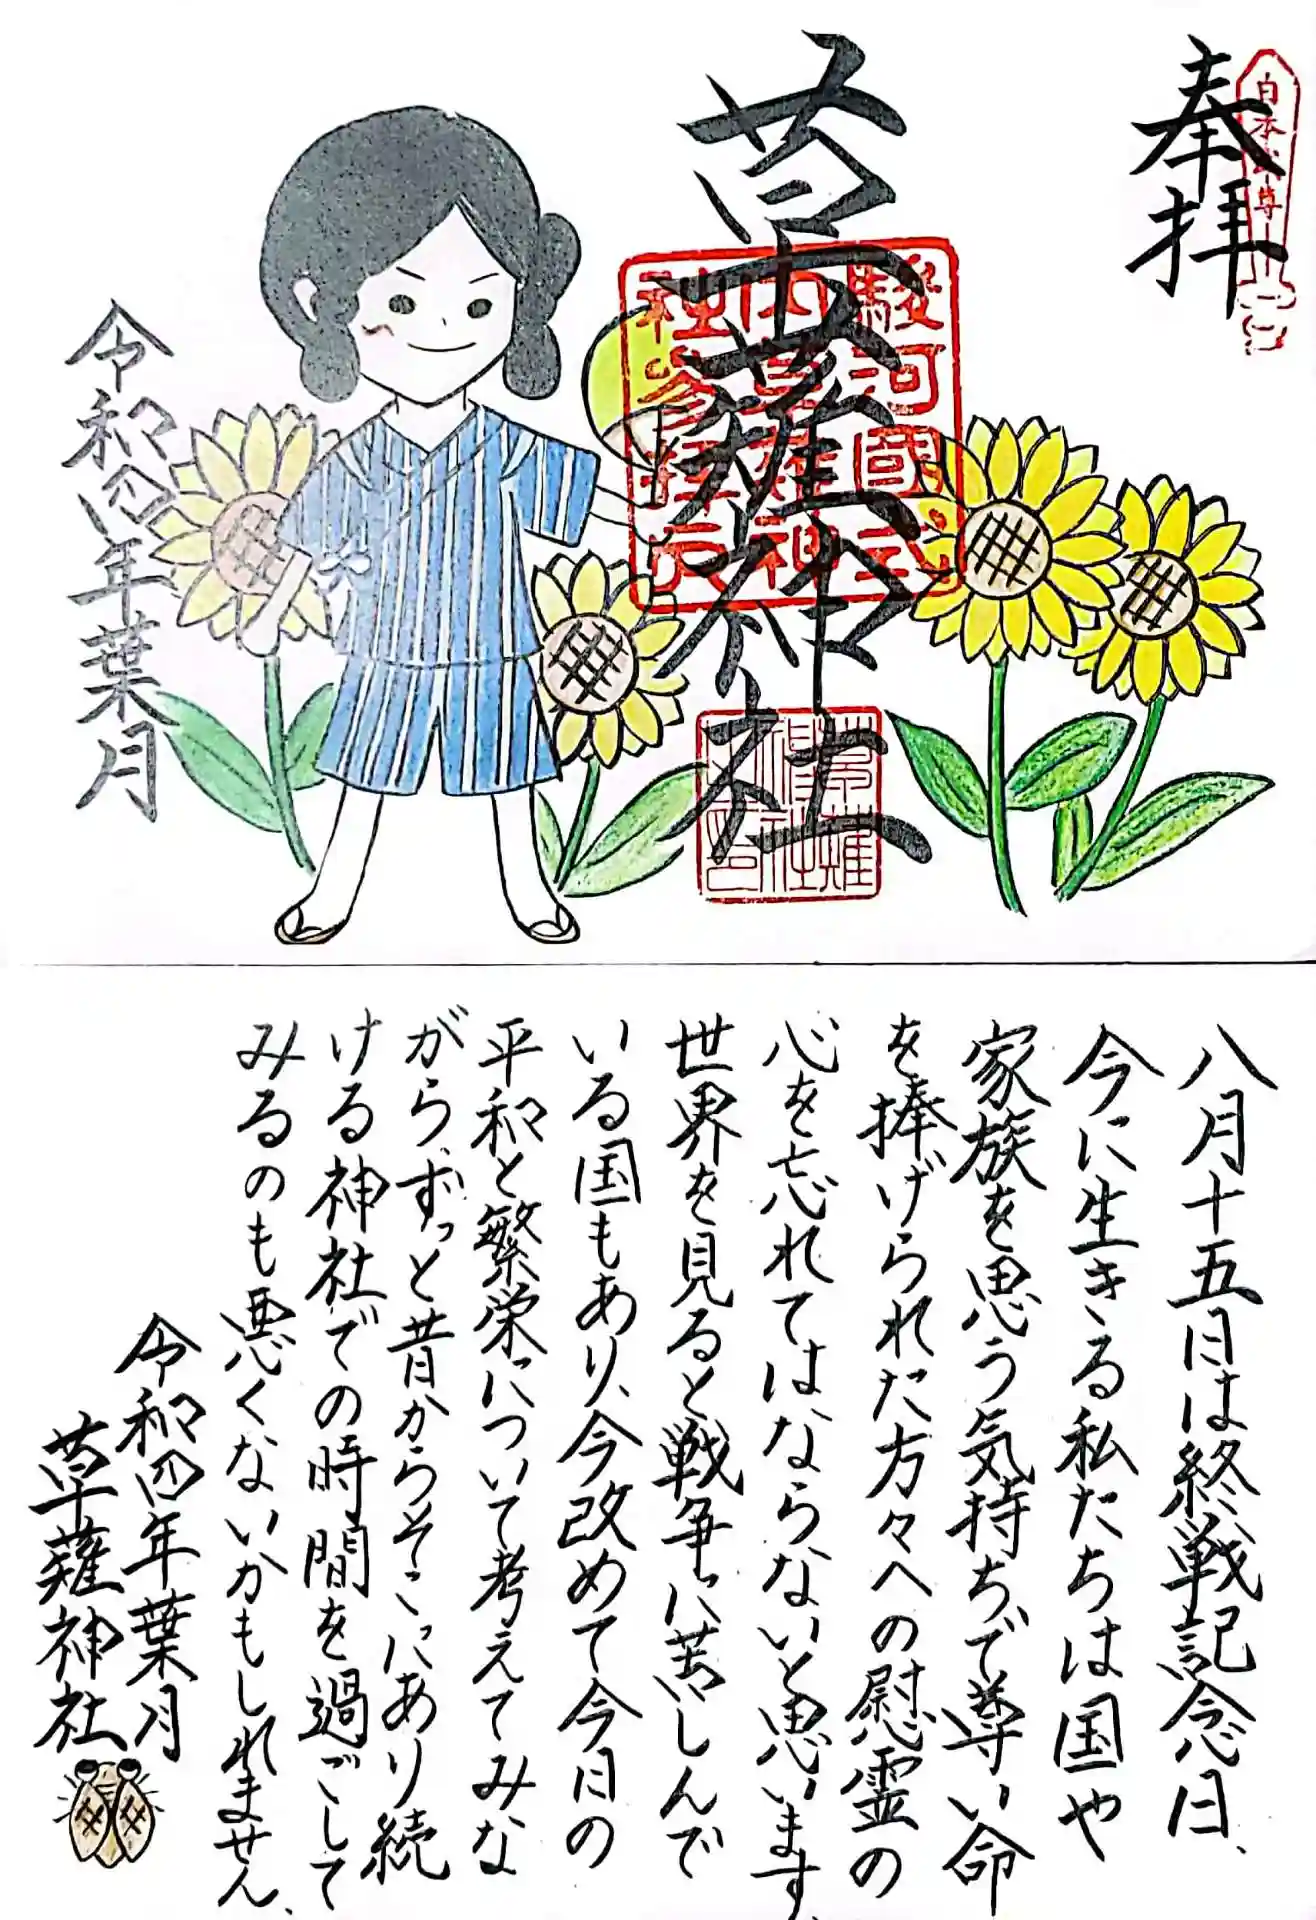 奉拝
日本武尊
草薙神社
駿河國
令和四年葉月
八月十五日は終戦記念日、
今に生きる私たちは国や
家族を思う気持ちで尊い命
を捧げられた方々への慰霊の
心を忘れてはならないと思います、
世界を見ると戦争に苦しんで
いる国もあり、今改めて今日の
平和と繁栄について考えてみな
がら、ずっと昔からそこにあり続
ける神社での時間を過ごして
みるのも悪くないかもしれません、
令和四年葉月
草薙神社